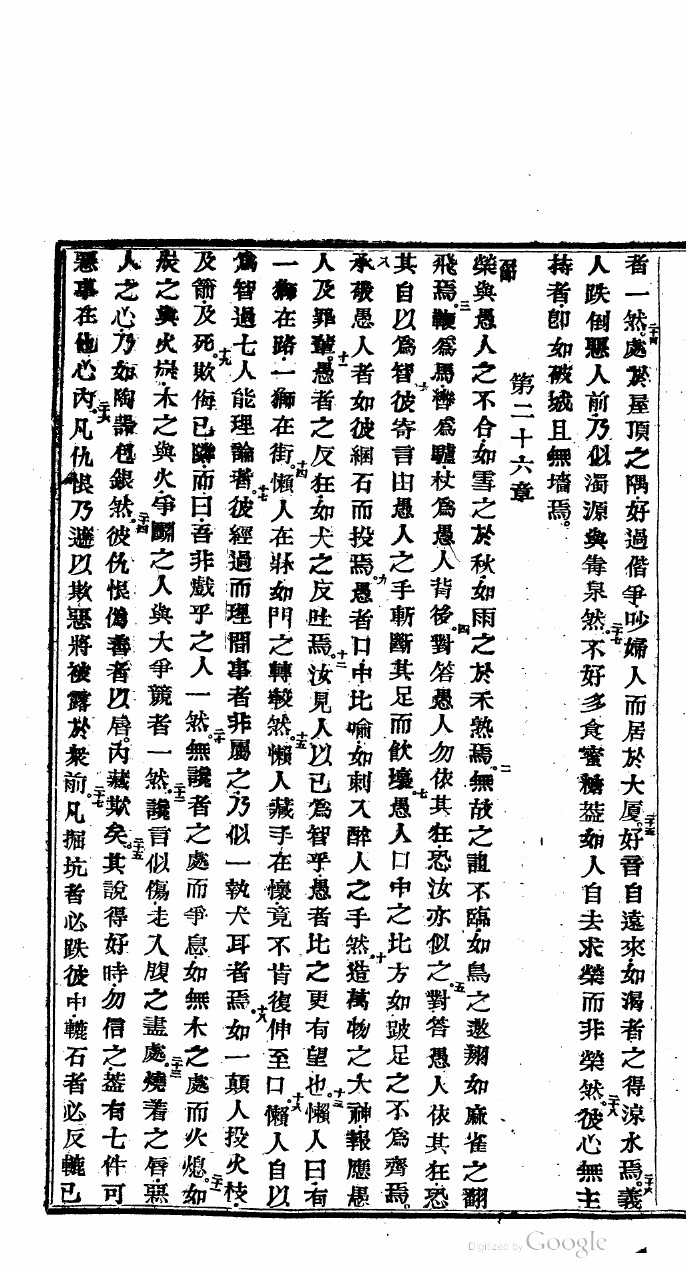 者一然。二十四處於屋頂之隅好過偕爭吵婦人而居於大厦。二十五好音自遠來如渴者之得涼水焉。二十六義
人跌倒惡人前乃似濁源與毒泉然。二十七不好多食蜜糖葢如人自去求榮而非榮然。二十八彼心無主
持者卽如被城且無墻焉。
第二十六章
首節榮與愚人之不合如雪之於秋如雨之於禾熟焉。二無故之詛不臨如鳥之遨翔如麻雀之翻
飛焉。三鞭爲馬轡爲驢杖爲愚人背後。四對答愚人勿依其狂恐汝亦似之。五對答愚人依其狂恐
其自以爲智。六彼寄言由愚人之手斬斷其足而飲壞。七愚人口中之比方如跛足之不爲齊焉。
八承破愚人者如彼綑石而投焉。九愚者口中比喻如刺入醉人之手然。十造萬物之大神報應愚
人及罪輩。十一愚者之反狂如犬之反吐焉。十二汝見人以已爲智乎愚者比之更有望也。十三懶人曰有
一獅在路一獅在街。十四懶人在牀如門之轉軗然。十五懶人藏手在懷竟不肯復伸至口。十六懶人自以
爲智過七人能理論者。十七彼經過而理閒事者非屬之乃似一執犬耳者焉。十八如一顛人投火枝
及箭及死。十九欺侮已隣而曰吾非戲乎之人一然。二十無讒者之處而爭息如無木之處而火熄。二十一如
炭之與火炭木之與火爭鬬之人與大爭競者一然。二十二讒言似傷走入腹之盡處。二十三燒着之唇惡
人之心乃如陶器包銀然。二十四彼仇恨僞善者以唇內藏欺矣。二十五其說得好時勿信之葢有七件可
惡事在他心內。二十六凡仇恨乃遮以欺惡將被露於衆前。二十七凡掘坑者必跌彼中轆石者必反轆已
Digitized by Google